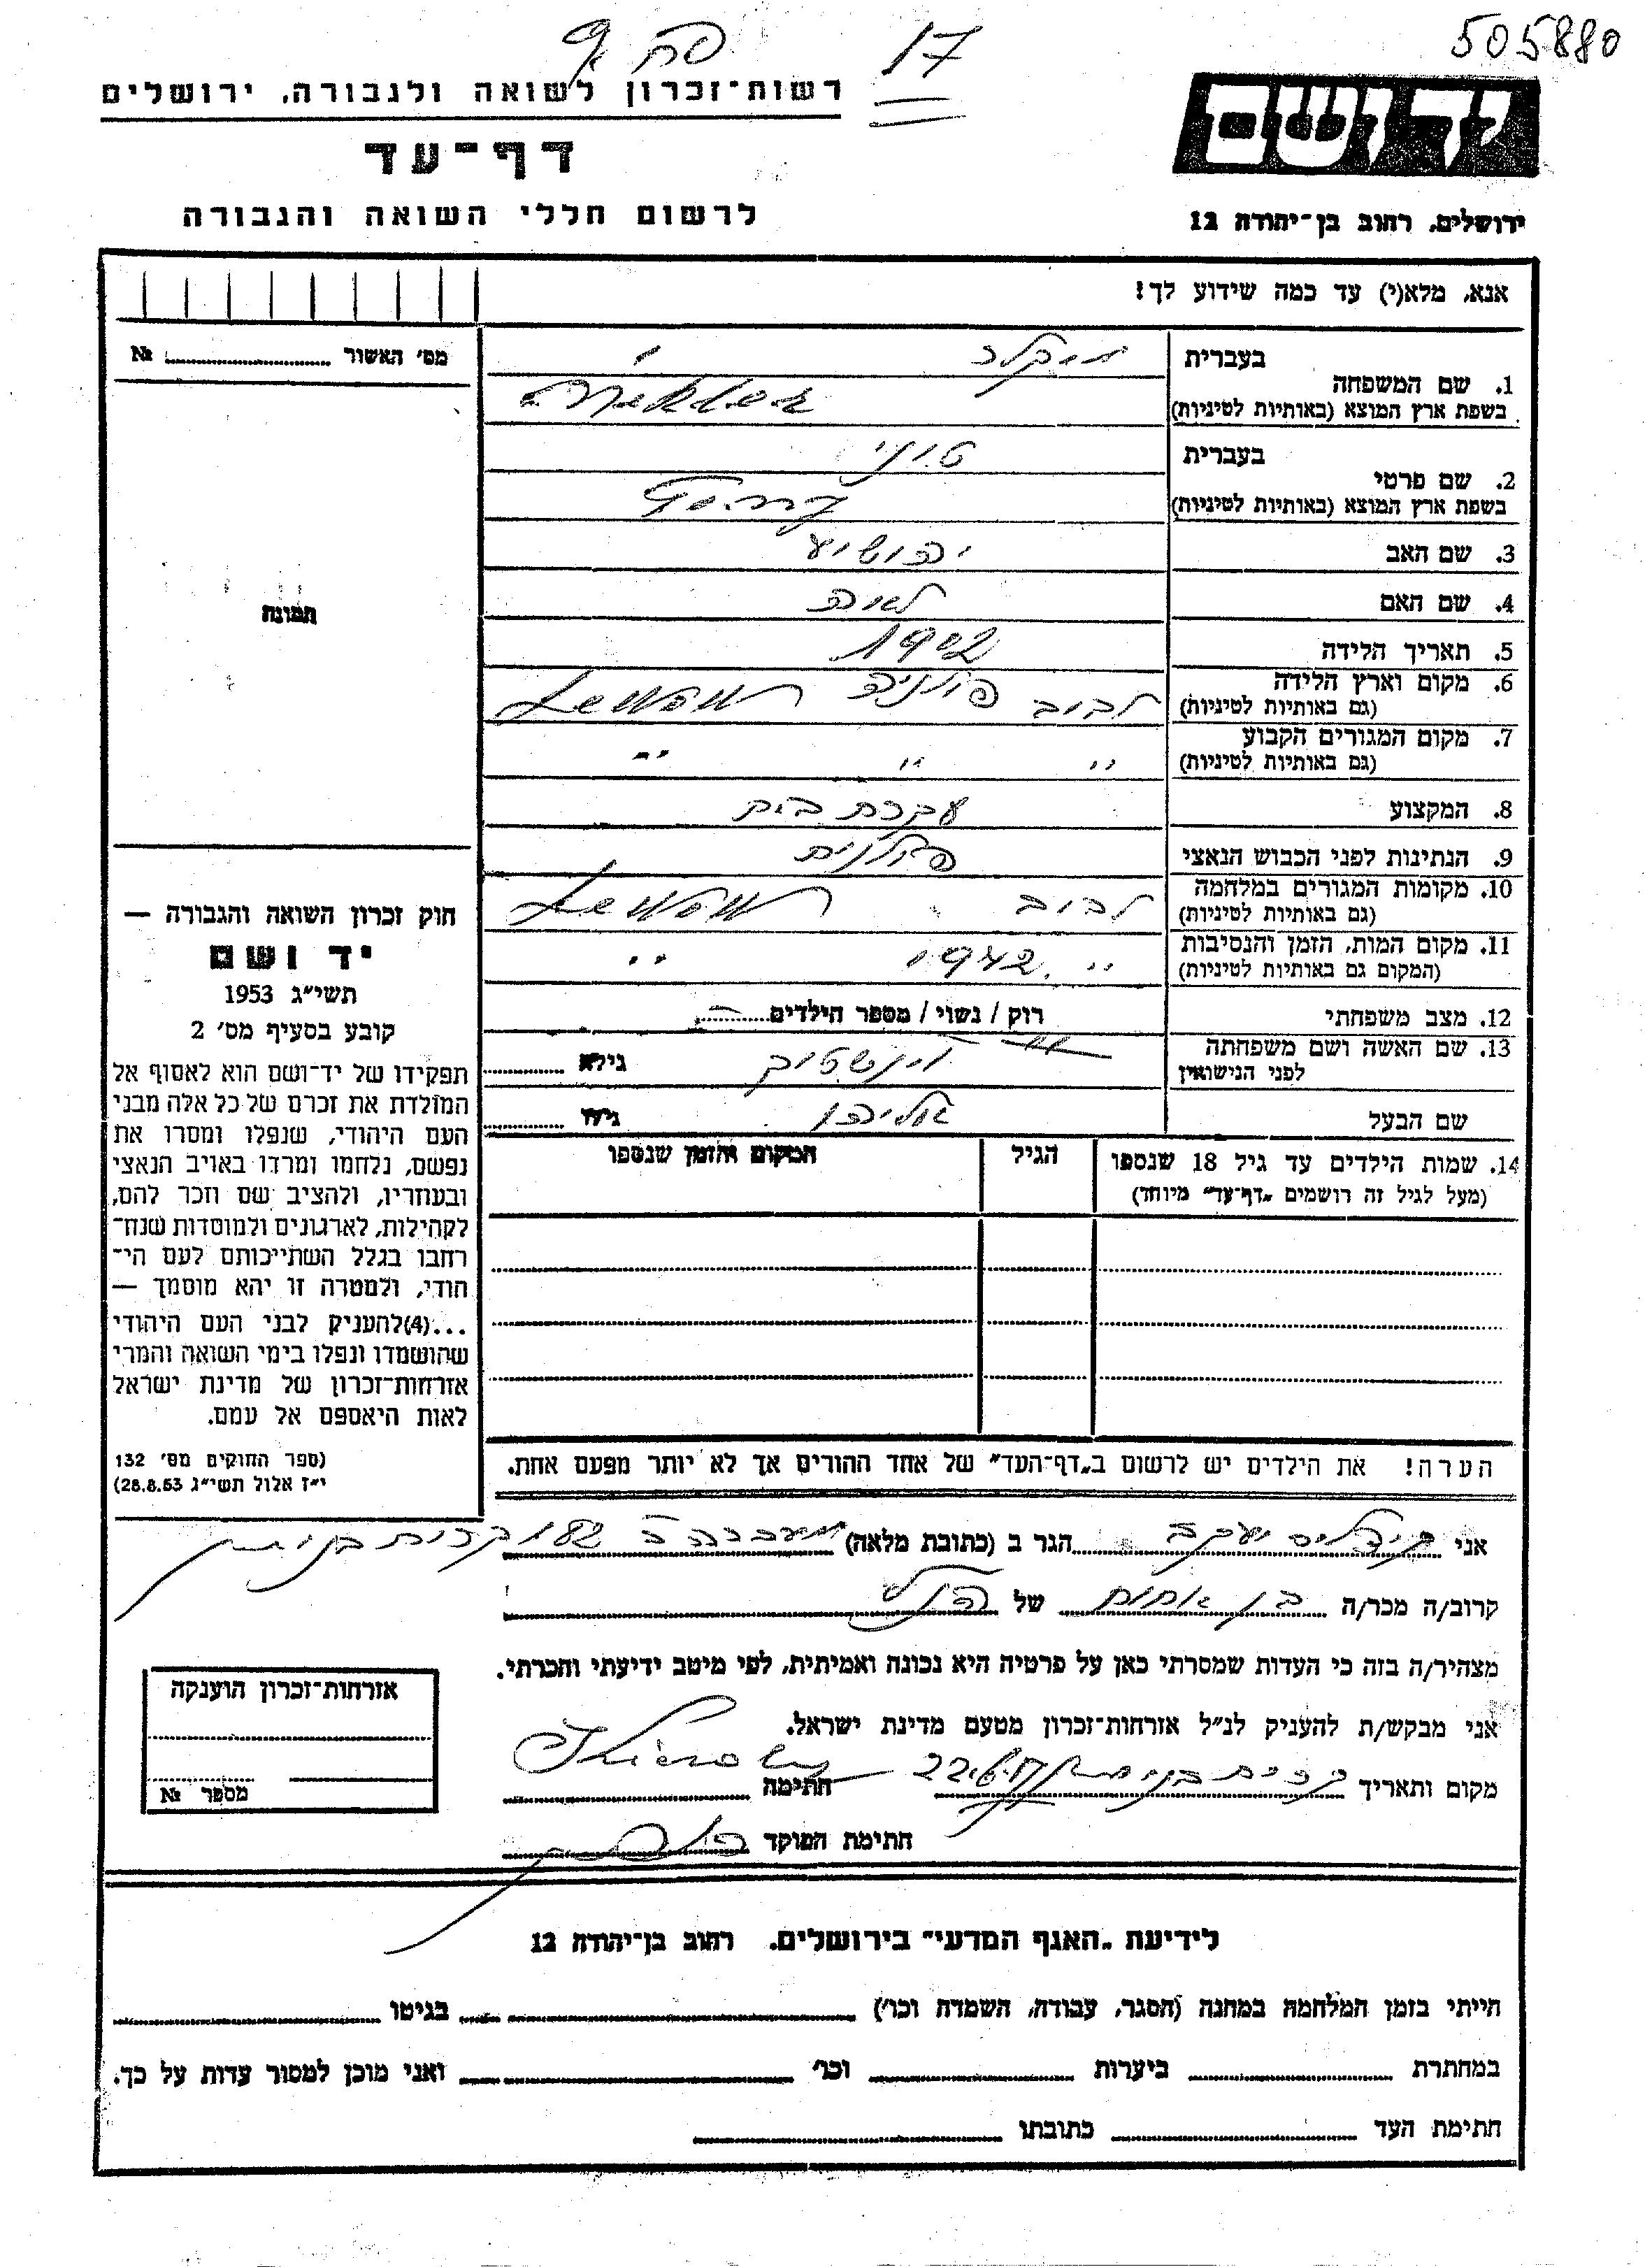 505880
17
סה 9
יד ושם
רשות־זכרון לשואה ולגבורה, ירושלים
דף־עד
ירושלים, רחוב בן־יהודה 12
לרשום חללי השואה והגבורה
אנא, מלא(י) עד כמה שידוע לך!
מס׳ האשור № 
1. שם המשפחה
בעברית
בשפת ארץ המוצא (באותיות לטיניות)
2. שם פרטי
בעברית טוני
בשפת ארץ המוצא (באותיות לטיניות)
3. שם האב יהושוע
4. שם האם לאה
5. תאריך הלידה 1902
6. מקום וארץ הלידה לבוב פולניה
(גם באותיות לטיניות)
7. מקום המגורים הקבוע " " "
(גם באותיות לטיניות)
8. המקצוע עקרת בית
9. הנתינות לפני הכבוש הנאצי פולנית
10. מקומות המגורים במלחמה לבוב
(גם באותיות לטיניות)
11. מקום המות, הזמן והנסיבות " 1942 "
(המקום גם באותיות לטיניות)
12. מצב משפחתי רוק / נשוי / מספר הילדים
13. שם האשה ושם משפחתה
לפני הנישואין
גילא
שם הבעל אליהו גילו
14. שמות הילדים עד גיל 18 שנספו
(מעל לגיל זה רושמים „דף־עד״ מיוחד)
הגיל
המקום והזמן שנספו
הערה! את הילדים יש לרשום ב„דף־העד״ של אחד ההורים אך לא יותר מפעם אחת.
תמונה
חוק זכרון השואה והגבורה —
יד ושם
תשי״ג 1953
קובע בסעיף מס׳ 2
תפקידו של יד־ושם הוא לאסוף אל
המולדת את זכרם של כל אלה מבני
העם היהודי, שנפלו ומסרו את
נפשם, נלחמו ומרדו באויב הנאצי
ובעוזריו, ולהציב שם וזכר להם,
לקהילות, לארגונים ולמוסדות שנח־
רחבו בגלל השתייכותם לעם הי־
הודי, ולמטרה זו יהא מוסמך —
...(4)להעניק לבני העם היהודי
שהושמדו ונפלו בימי השואה והמרי
אזרחות־זכרון של מדינת ישראל
לאות היאספם אל עמם.
(ספר החוקים מס׳ 132
י״ז אלול תשי״ג 28.8.53)
אני יעקב הגר ב (כתובת מלאה) מעברה קרית בנימין
קרוב/ה מכר/ה בן אחות של הנ״ל
מצהיר/ה בזה כי העדות שמסרתי כאן על פרטיה היא נכונה ואמיתית, לפי מיטב ידיעתי והכרתי.
אני מבקש/ת להעניק לנ״ל אזרחות־זכרון מטעם מדינת ישראל.
מקום ותאריך קרית בנימין חתימה
חתימת הפוקד
אזרחות־זכרון הוענקה
מספר №
לידיעת „האגף המדעי״ בירושלים. רחוב בן־יהודה 12
הייתי בזמן המלחמה במחנה (הסגר, עבודה, השמדה וכו׳) בגיטו
במחתרת ביערות וכו׳ ואני מוכן למסור עדות על כך.
חתימת העד כתובתו